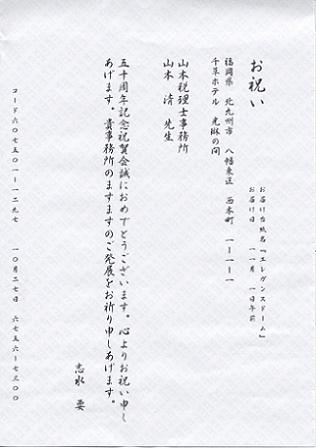 お祝い
お届け台紙名『エレガンスドーム』
お届け日 一一月 一日午前
福岡県 北九州市 八幡東区 西本町 一-一-一
千草ホテル 光琳の間
山本税理士事務所
山本 清 先生
五十周年記念祝賀会誠におめでとうございます。心よりお祝い申し
あげます。貴事務所のますますのご発展をお祈り申しあげます。
志水 要
コード六〇七五〇一-一二九七 一〇月二七日 六七五六-七三〇〇